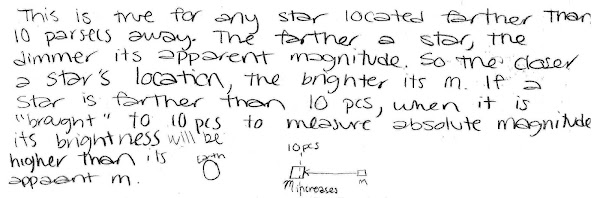 This is true for any star located farther than
10 parsecs away. The farther a star, the
dimmer its apparent magnitude. So the closer
a star's location, the brighter its m. If a
star is farther than 10 pcs, when it is
"brought" to 10 pcs to measure absolute magnitude
its brightness will be
higher than its
appaent m.
earth
10 pcs
M increases
m